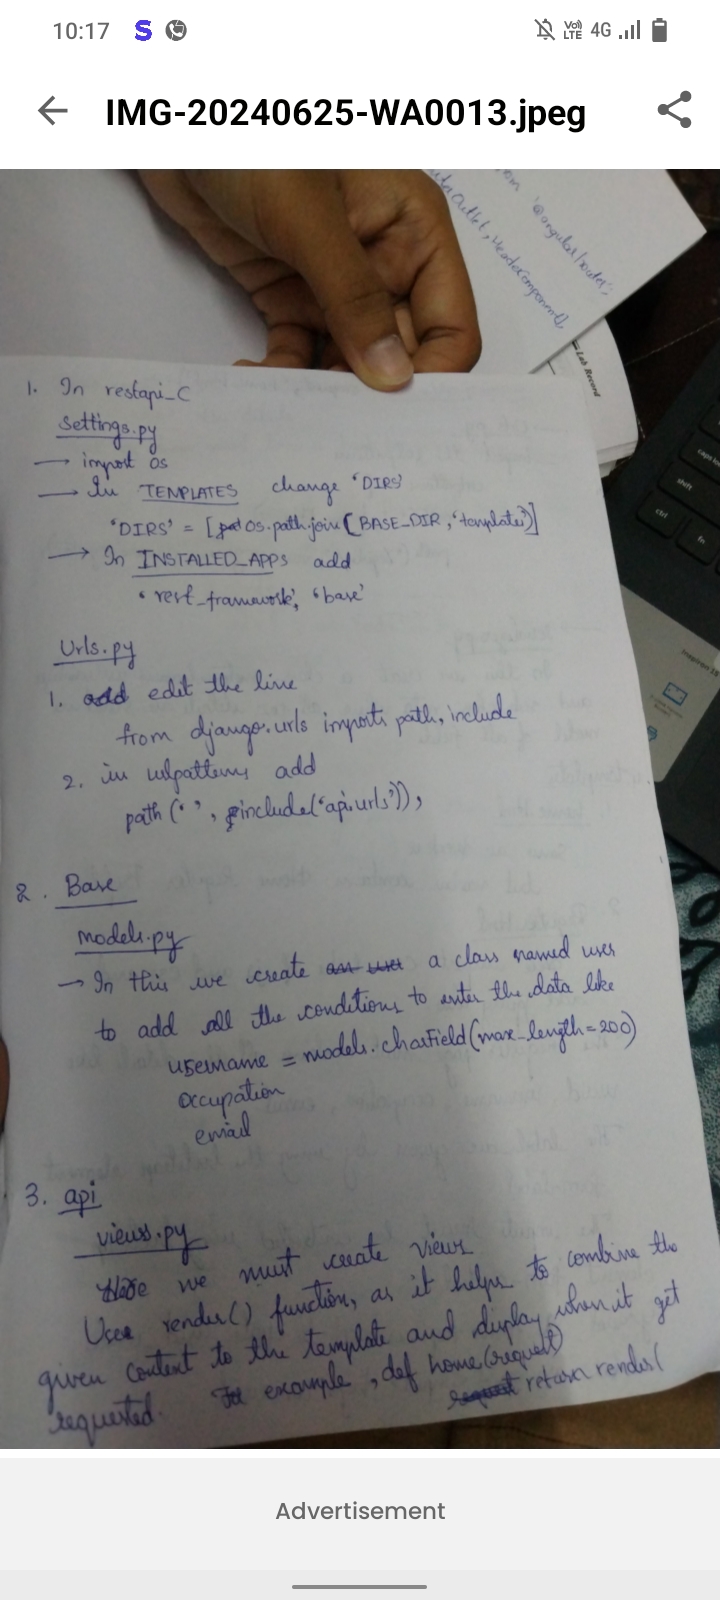 10:17
S
Vo))
LTE 4G
IMG-20240625-WA0013.jpeg
from '@angular/router';
Outlet, HeaderComponent],
Lab Record
caps
shift
ctrl
fn
Inspiron 15
1. In restapi_C
Settings.py
→ import os
→ In TEMPLATES change 'DIRS'
'DIRS' = [os.path.join(BASE_DIR, 'templates')]
→ In INSTALLED_APPS add
'rest_framework', 'base'
Urls.py
1. add edit the line
from django.urls imports path, include
2. in urlpatterns add
path(' ', include('api.urls')),
2. Base
models.py
→ In this we create an user a class named user
to add all the conditions to enter the data like
username = models.charField(max_length=200)
occupation
email
3. api
views.py
Here we must create views
Uses render() function, as it helps to combine the
given context to the template and display when it get
requested. For example, def home(request)
request return render(
Advertisement